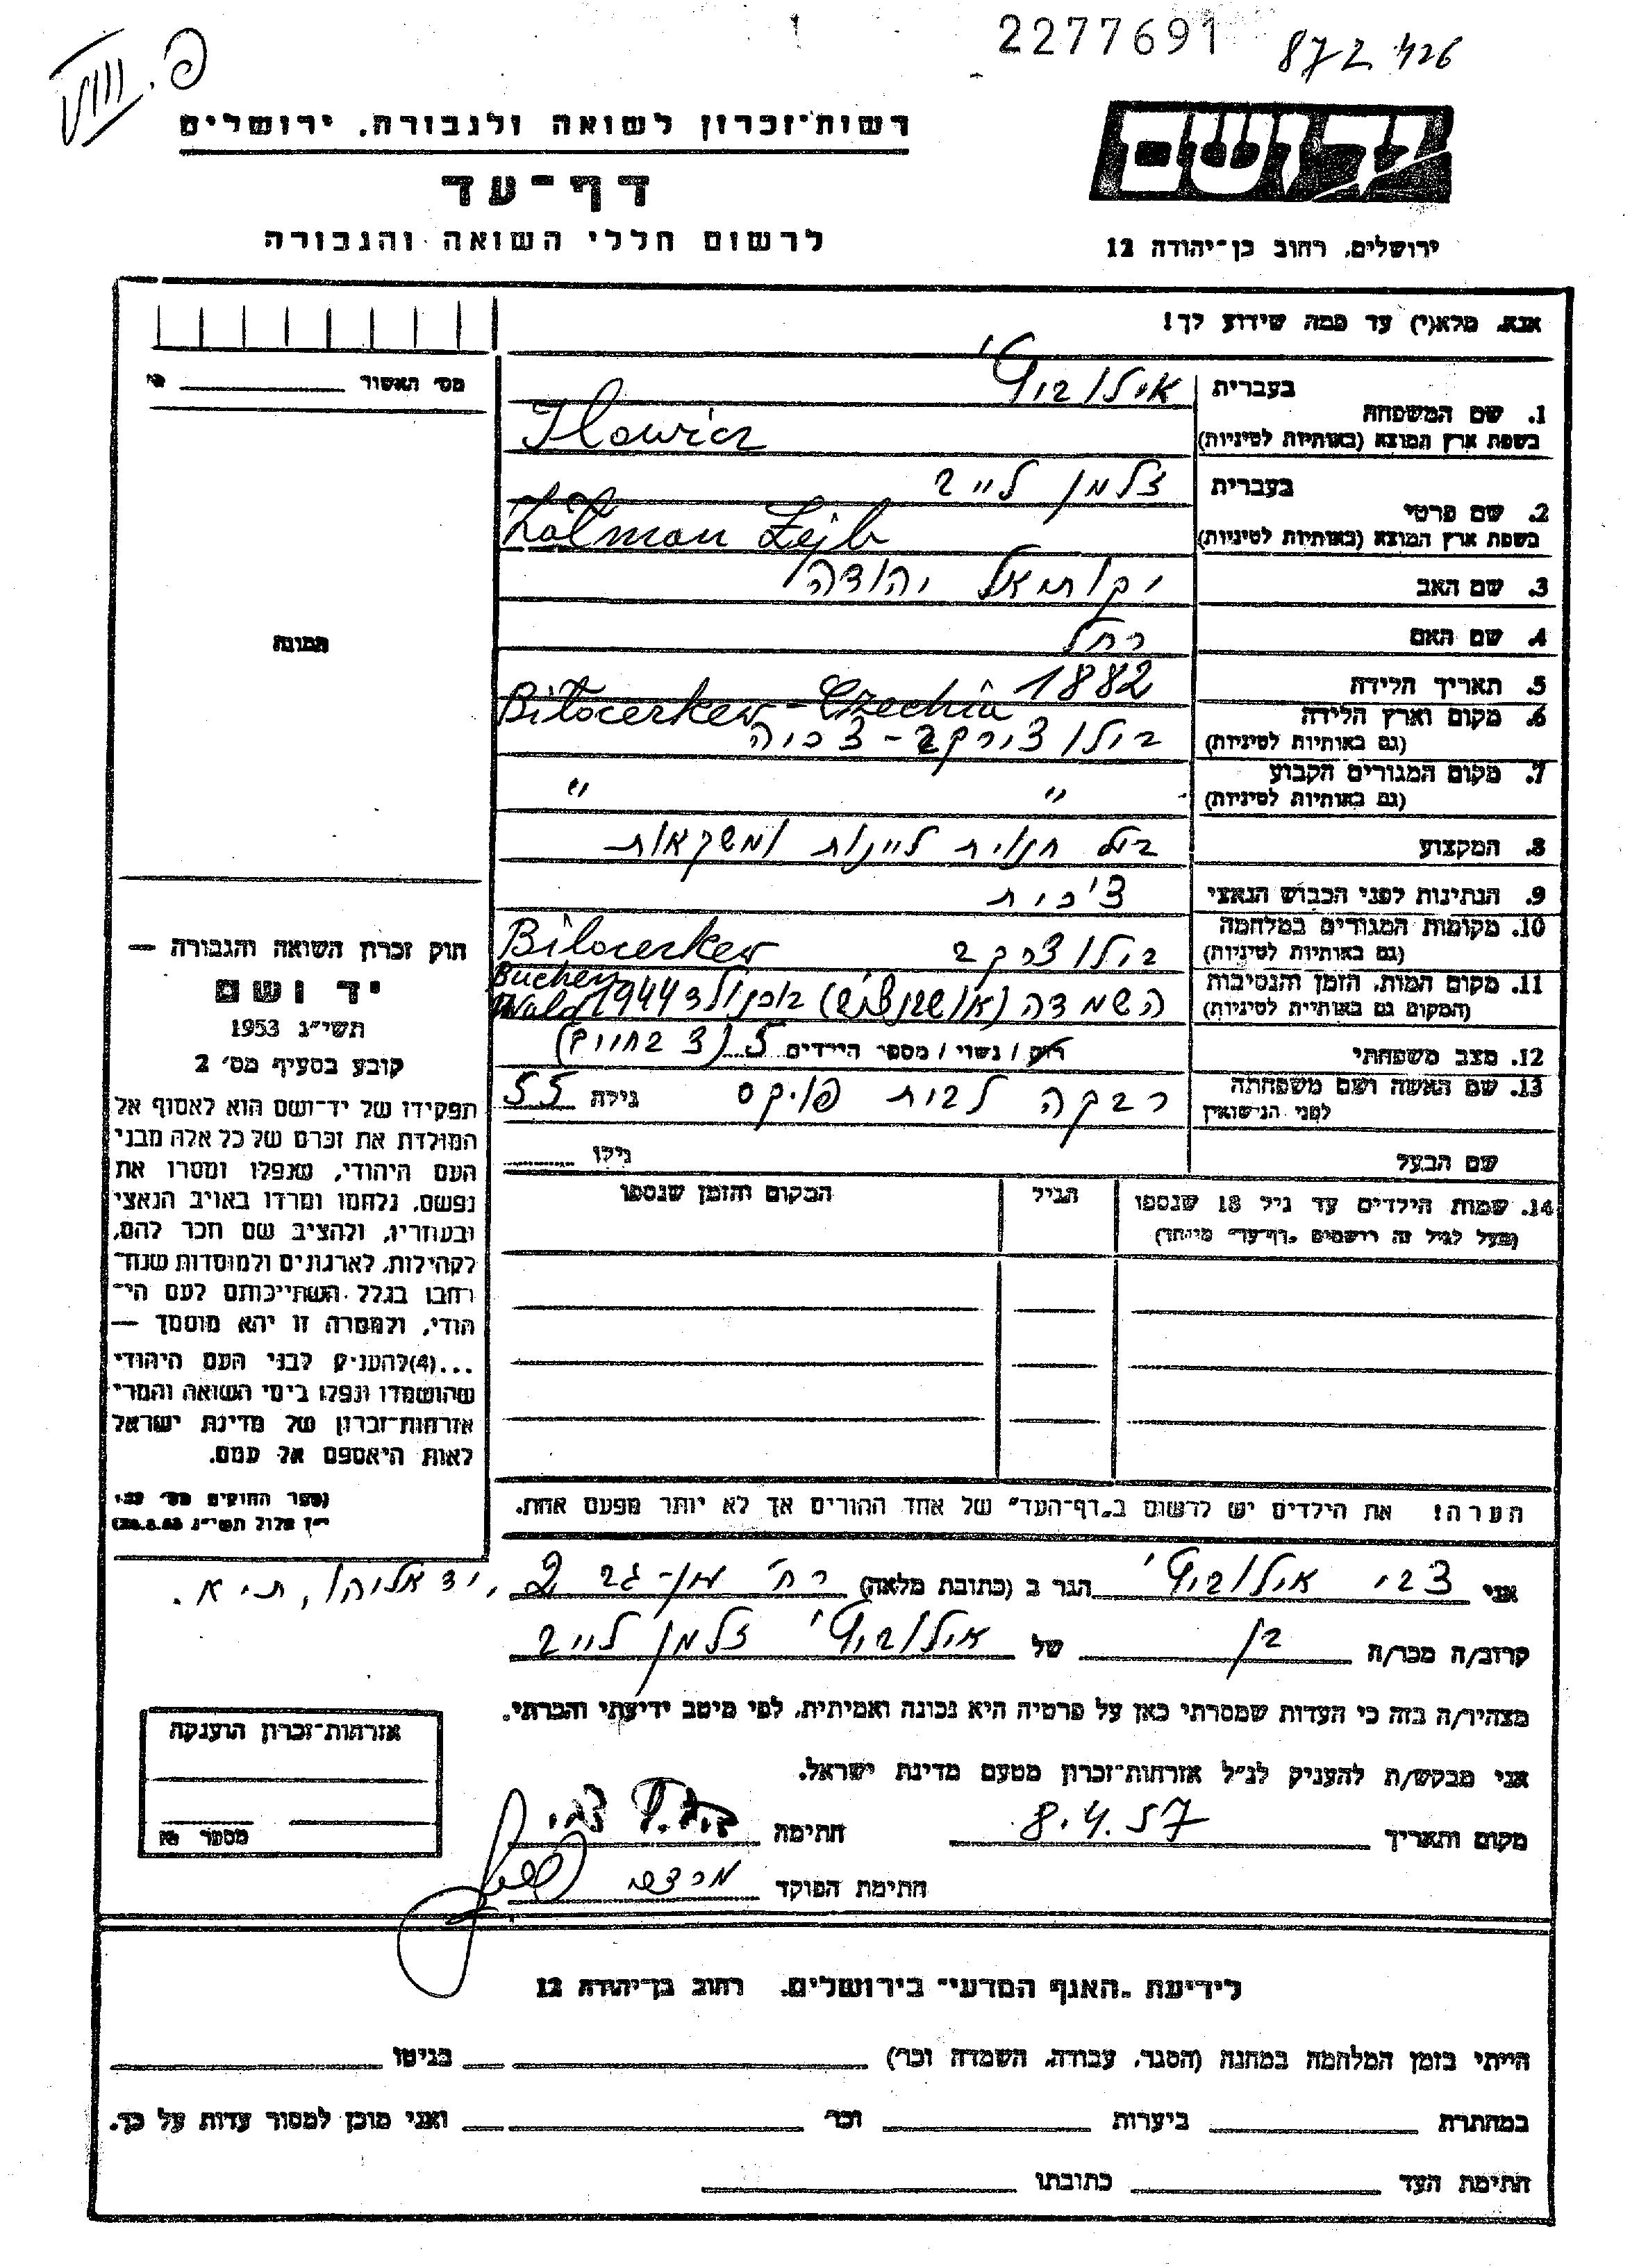 2277691
872 426
פ. VIII
ידושם
רשות־זכרון לשואה ולגבורה, ירושלים
דף־עד
לרשום חללי השואה והגבורה
ירושלים, רחוב בן־יהודה 12
אנא, מלא(י) עד כמה שידוע לך!
מס' האשור
1. שם המשפחה
בעברית אילוביץ'
בשפת ארץ המוצא (באותיות לטיניות) Ilowicz
2. שם פרטי
בעברית זלמן לייב
בשפת ארץ המוצא (באותיות לטיניות) Zalman Lejb
3. שם האב יקותיאל יהודה
4. שם האם רחל
5. תאריך הלידה 1882
6. מקום וארץ הלידה Bilocerkew - Czechia
(גם באותיות לטיניות) בילו צירקב - צכיה
7. מקום המגורים הקבוע
(גם באותיות לטיניות) " "
8. המקצוע בעל חנוית ליינות ומשקאות
9. הנתינות לפני הכבוש הנאצי צ'כית
10. מקומות המגורים במלחמה
(גם באותיות לטיניות) בילו צרקב Bilocerkew
11. מקום המות, הזמן והנסיבות
(המקום גם באותיות לטיניות) השמדה (אושוינציש) בוכנולד 1944 Buchenwald
12. מצב משפחתי רוק / נשוי / מספר הילדים 5 (3 בחיים)
13. שם האשה ושם משפחתה
לפני הנישואין רבקה לבית פוקס גילה 55
שם הבעל גילו
14. שמות הילדים עד גיל 18 שנספו הגיל המקום והזמן שנספו
(מעל לגיל זה רושמים "דף־עד" מיוחד)
הערה! את הילדים יש לרשום ב"דף־העד" של אחד ההורים אך לא יותר מפעם אחת.
תמונה
חוק זכרון השואה והגבורה —
יד ושם
תשי"ג 1953
קובע בסעיף מס' 2
תפקידו של יד־ושם הוא לאסוף אל
המולדת את זכרם של כל אלה מבני
העם היהודי, שנפלו ומסרו את
נפשם, נלחמו ומרדו באויב הנאצי
ובעוזריו, ולהציב שם וזכר להם,
לקהילות, לארגונים ולמוסדות שנח־
רבו בגלל השתייכותם לעם הי־
הודי, ולמטרה זו יהא מוסמך —
...(4)להעניק לבני העם היהודי
שהושמדו ונפלו בימי השואה והמרי
אזרחות־זכרון של מדינת ישראל
לאות היאספם אל עמם.
(ספר החוקים מס' 132
י"ז אלול תשי"ג 28.8.53)
אני צבי אילוביץ' הגר ב (כתובת מלאה) רח' 2, יד אליהו, ת"א.
קרוב/ה מכר/ה בן של אילוביץ' זלמן לייב
מצהיר/ה בזה כי העדות שמסרתי כאן על פרטיה היא נכונה ואמיתית, לפי מיטב ידיעתי והכרתי.
אני מבקש/ת להעניק לנ"ל אזרחות־זכרון מטעם מדינת ישראל.
מקום ותאריך 8.4.57 חתימה
חתימת הפוקד
אזרחות־זכרון הוענקה
מספר
לידיעת "האגף המדעי" בירושלים. רחוב בן־יהודה 12
הייתי בזמן המלחמה במחנה (הסגר, עבודה, השמדה וכו') בגיטו
במחתרת ביערות וכו' ואני מוכן למסור עדות על כך.
חתימת העד כתובתו